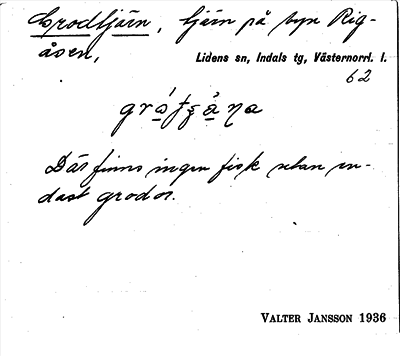 Grodtjärn, tjärn på byn Rig-
åsen,
Lidens sn, Indals tg, Västernorrl. l.
62
Där finns ingen fisk utan en-
dast grodor.
VALTER JANSSON 1936